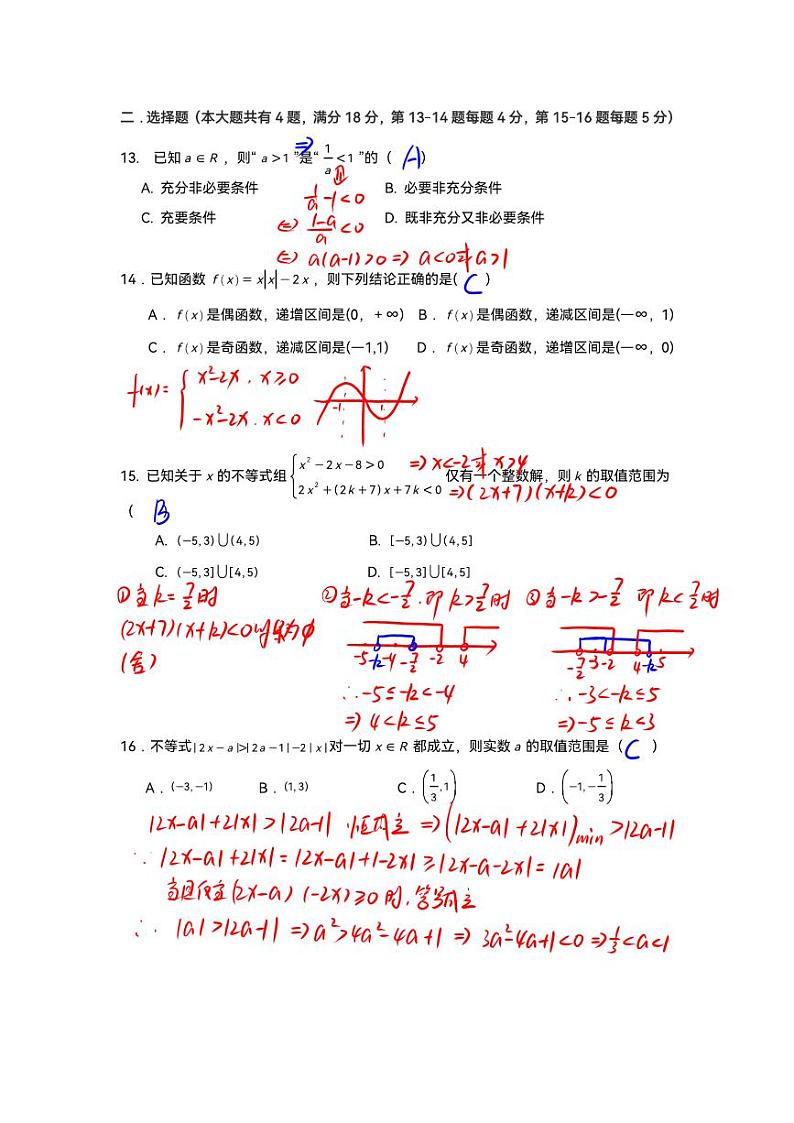 二．选择题（本大题共有 4 题，满分 18 分，第 13-14 题每题 4 分，第 15-16 题每题 5 分）
13. 已知 a∈R ，则“ a>1 ”是“ 1/a <1 ”的（ A ）
⇒
A. 充分非必要条件 B. 必要非充分条件
1/a -1<0
C. 充要条件 D. 既非充分又非必要条件
⇔ (1-a)/a <0
⇔ a(a-1)>0 ⇒ a<0或a>1
14．已知函数 f(x)=x|x|-2x ，则下列结论正确的是( C )
A． f(x) 是偶函数，递增区间是(0，+∞) B．f(x) 是偶函数，递减区间是(一∞，1)
C．f(x) 是奇函数，递减区间是(一1,1) D．f(x) 是奇函数，递增区间是(一∞，0)
f(x)= { x²-2x , x≥0
-x²-2x , x<0
-1 1
15. 已知关于 x 的不等式组 { x²-2x-8>0 ⇒ x<-2或x>4
2x²+(2k+7)x+7k<0 仅有一个整数解，则 k 的取值范围为
⇒(2x+7)(x+k)<0
（ B
A. (-5,3)∪(4,5) B. [-5,3)∪(4,5]
C. (-5,3]∪[4,5) D. [-5,3]∪[4,5]
①当k=7/2时 ②当-k<-7/2,即k>7/2时 ③当-k>-7/2 即k<7/2时
(2x+7)(x+k)<0的解为∅
(舍)
-5 -k -4 -7/2 -2 4
-7/2 -3 -2 4 -k 5
∴-5≤-k<-4 ∴-3<-k≤5
⇒ 4<k≤5 ⇒-5≤k<3
16．不等式|2x-a|>|2a-1|-2|x|对一切 x∈R 都成立，则实数 a 的取值范围是（ C ）
A．(-3,-1) B．(1,3) C．(1/3,1) D．(-1,-1/3)
|2x-a|+2|x|>|2a-1| 恒成立 ⇒(|2x-a|+2|x|)min>|2a-1|
∵ |2x-a|+2|x|=|2x-a|+|-2x|≥|2x-a-2x|=|a|
当且仅当(2x-a)(-2x)≥0时,等号成立
∴ |a|>|2a-1| ⇒a²>4a²-4a+1 ⇒ 3a²-4a+1<0 ⇒1/3<a<1